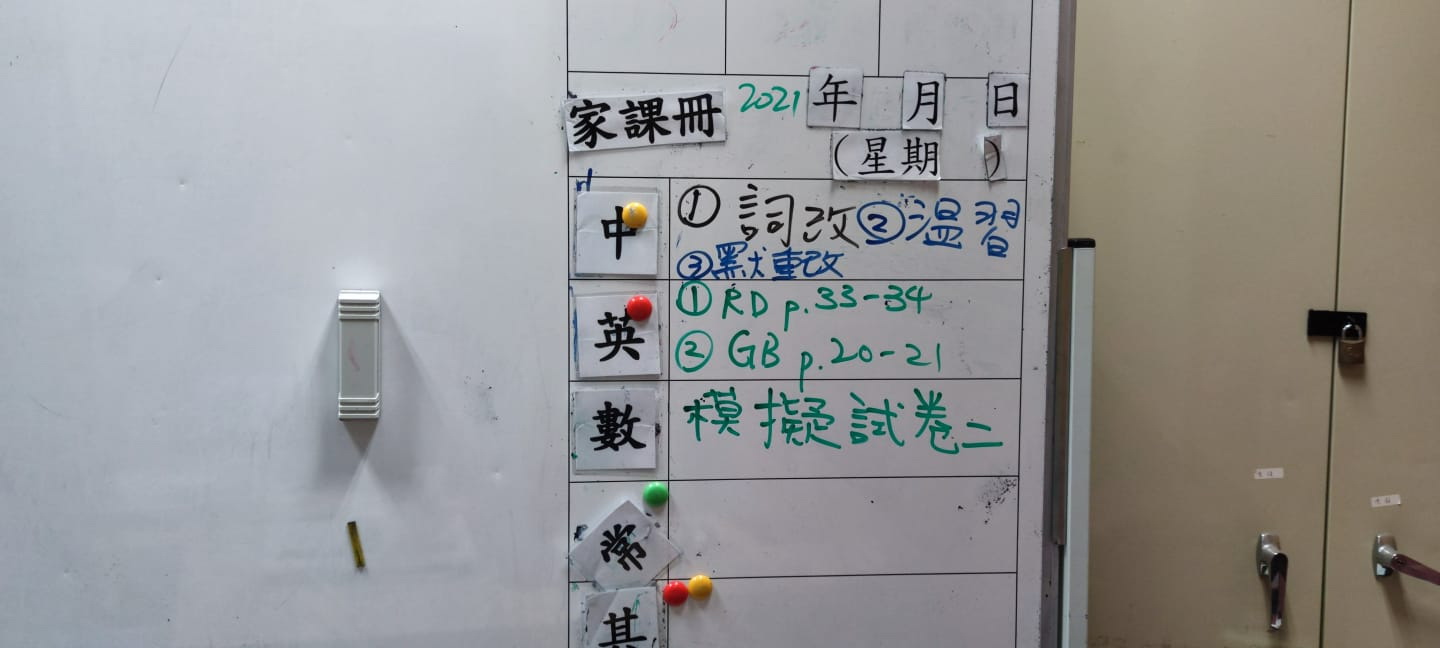 家課冊 2021 年 月 日
(星期 )
中 ① 詞改 ② 温習
③ 默重改
英 ① RD p.33-34
② GB p.20-21
數 模擬試卷二
常
其